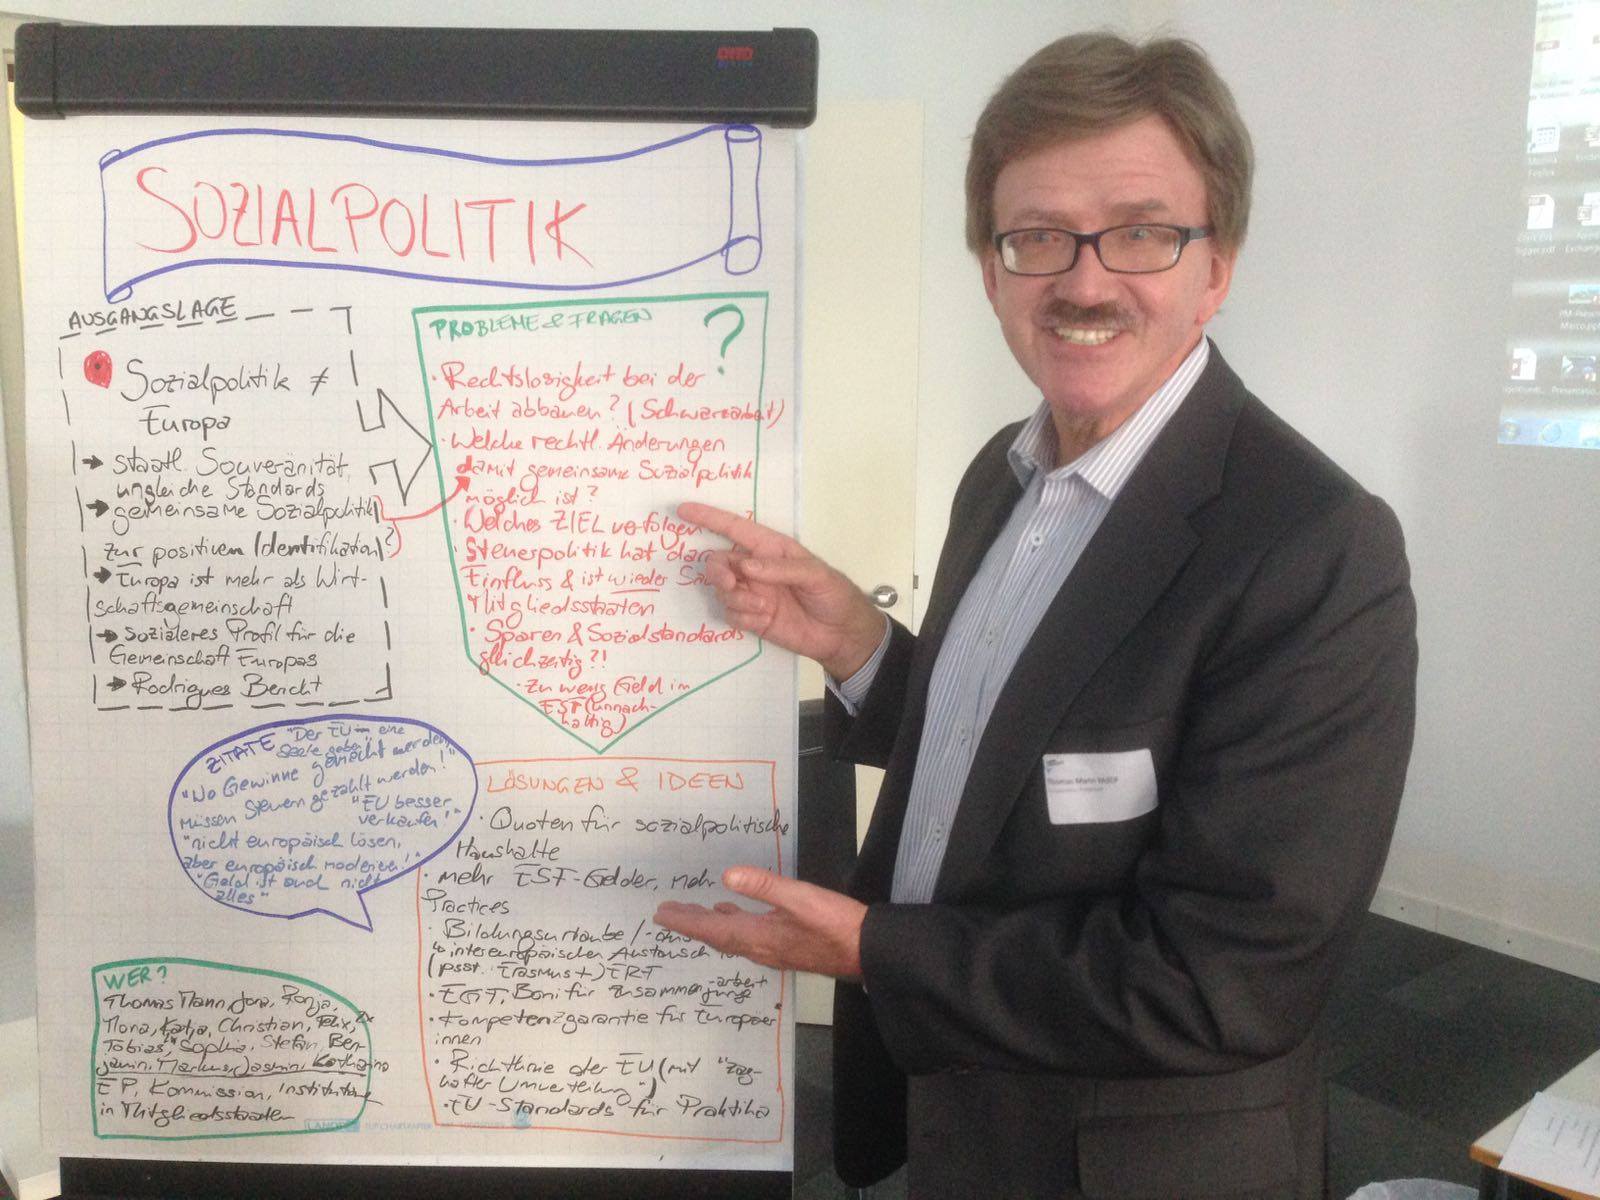 SOZIALPOLITIK
AUSGANGSLAGE
Sozialpolitik ≠
Europa
→ staatl. Souveränität,
ungleiche Standards
→ gemeinsame Sozialpolitik
zur positiven Identifikation?
→ Europa ist mehr als Wirt-
schaftsgemeinschaft
→ Sozialeres Profil für die
Gemeinschaft Europas
→ Rodrigues Bericht
PROBLEME & FRAGEN
?
· Rechtslosigkeit bei der
Arbeit abbauen? (Schwarzarbeit)
· Welche rechtl. Änderungen
damit gemeinsame Sozialpolitik
möglich ist?
· Welches ZIEL verfolgen ?
· Steuerpolitik hat
Einfluss & ist wieder
Mitgliedsstaaten
· Sparen & Sozialstandards
gleichzeitig?!
· Zu wenig Geld im
ESF (unnach-
haltig)
ZITATE
"Der EU eine
Seele geben"
"Wo Gewinne gemacht werden,
müssen Steuern gezahlt werden!"
"EU besser
verkaufen!"
"nicht europäisch lösen,
aber europäisch moderieren!"
"Geld ist auch nicht
alles"
LÖSUNGEN & IDEEN
· Quoten für sozialpolitische
Haushalte
· mehr ESF-Gelder, mehr
Practices
· Bildungsurlaube /
intereuropäischen Austausch
(psst. Erasmus+) ERT
· EGT, Boni für Zusammen-arbeit
· Kompetenzgarantie für Europäer
innen
· Richtlinie der EU (mit "zag-
hafter Umverteilung")
· EU-Standards für Praktika
WER?
Thomas Mann, Jana, Ronja,
Mona, Katja, Christian, Felix, 2x
Tobias, Sophia, Stefan, Ben-
jamin, Markus, Jasmin, Katharina
EP, Kommission, Institutionen
in Mitgliedsstaaten
Thomas Mann MdEP